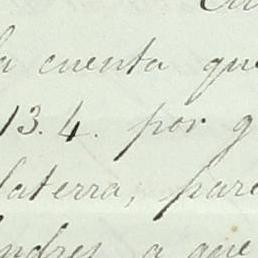 la cuenta que
13. 4. por g
laterra, par
ndres, a que